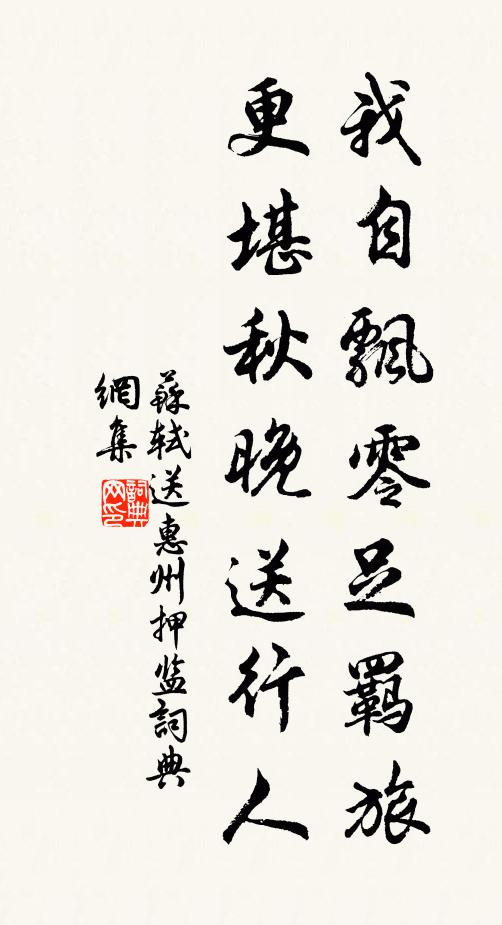 我自飄零足羈旅
更堪秋晚送行人
蘇軾送惠州押监詞典
網集
詞典
网印